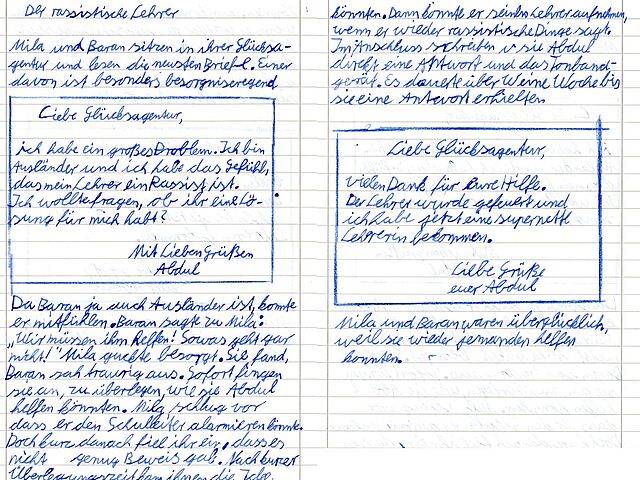 Der rassistische Lehrer
Mila und Baran sitzen in ihrer Glücksa-
gentur und lesen die neusten Briefe. Einer
davon ist besonders besorgniseregend
Liebe Glücksagentur,
ich habe ein großes Problem. Ich bin
Ausländer und ich habe das Gefühl,
das mein Lehrer ein Rassist ist.
Ich wollte fragen, ob ihr eine Lö-
sung für mich habt?
Mit Lieben Grüßen
Abdul
Da Baran ja auch Ausländer ist, konnte
er mitfühlen. Baran sagte zu Mila:
„Wir müssen ihm helfen! Sowas geht gar
nicht!" Mila guckte besorgt. Sie fand,
Baran sah traurig aus. Sofort fingen
sie an, zu überlegen, wie sie Abdul
helfen könnten. Mila schlug vor
dass er den Schulleiter alarmieren könnte.
Doch kurz danach fiel ihr ein, dass es
nicht genug Beweis gab. Nach kurzer
Überlegungszeit kam ihnen die Idee,
könnten. Dann könnte er seinen Lehrer aufnehmen,
wenn er wieder rassistische Dinge sagt.
Im Anschluss schreiben sie Abdul
direkt eine Antwort und das Tonband-
gerät. Es dauerte über eine Woche bis
sie eine Antwort erhielten
Liebe Glücksagentur,
vielen Dank für eure Hilfe.
Der Lehrer wurde gefeuert und
ich habe jetzt eine supernette
Lehrerin bekommen.
Liebe Grüße
euer Abdul
Mila und Baran waren überglücklich,
weil sie wieder jemanden helfen
konnten.